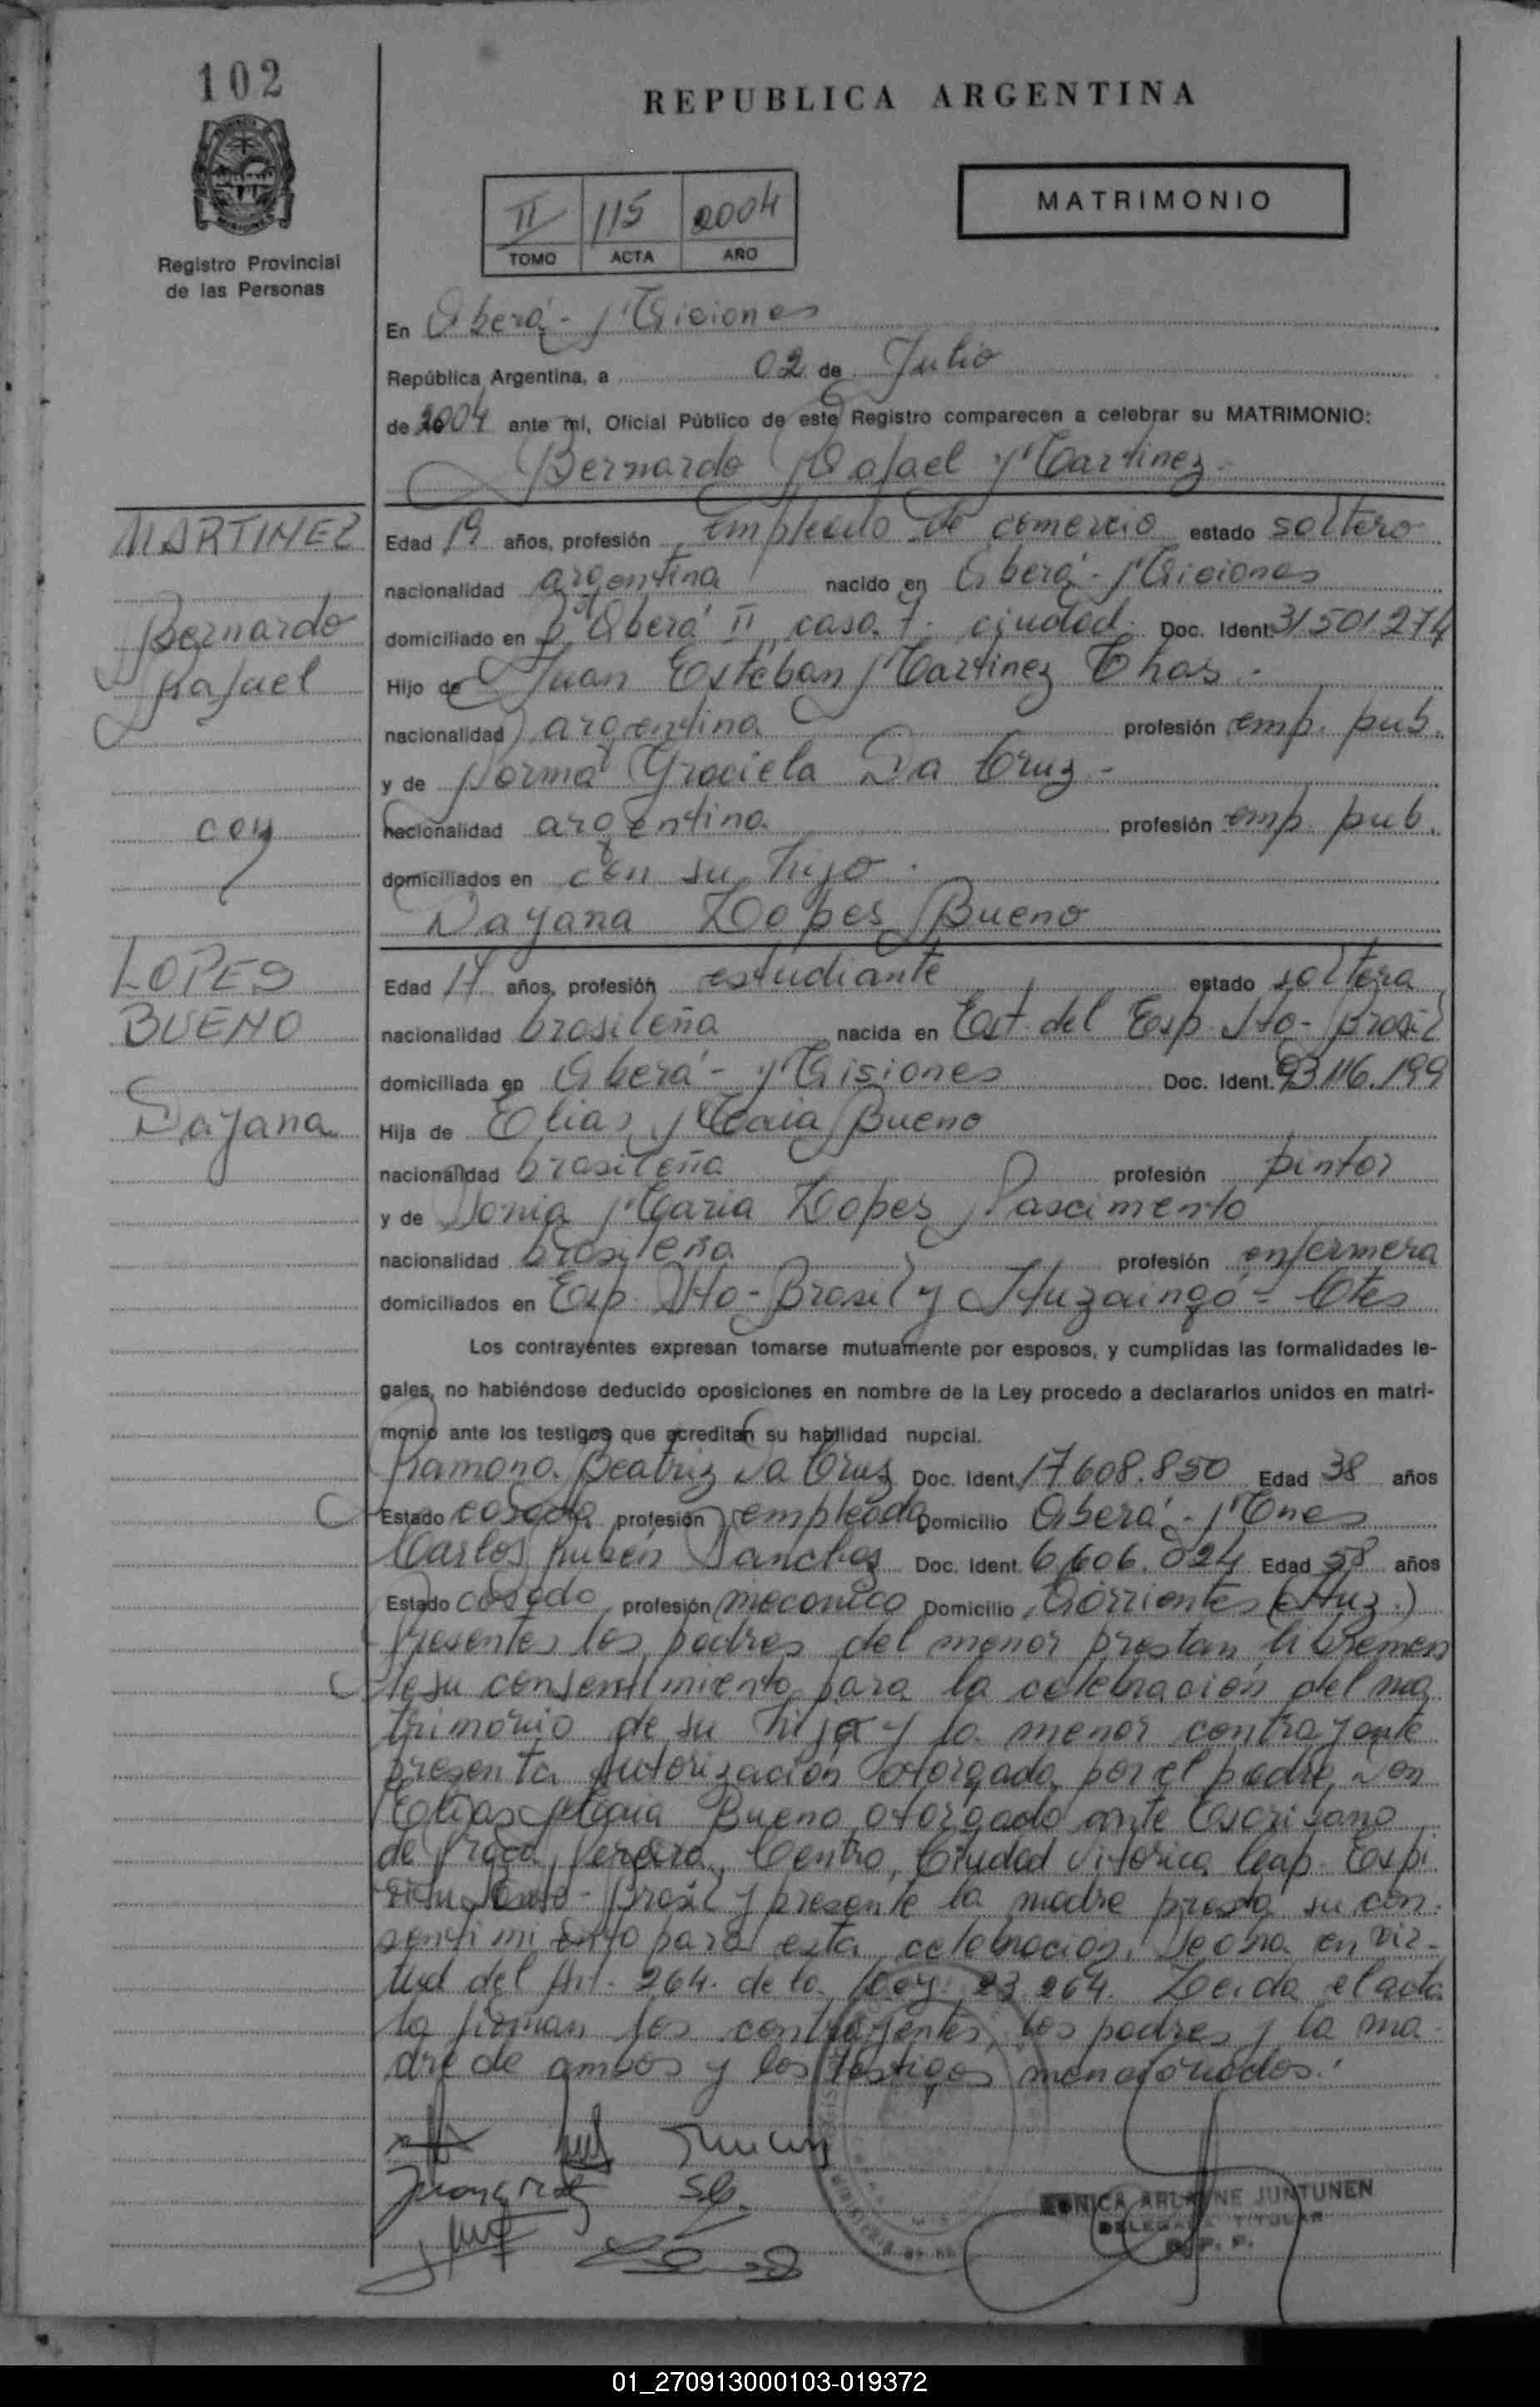 102
REPUBLICA ARGENTINA
Registro Provincial
de las Personas
II 115 2004
TOMO ACTA AÑO
MATRIMONIO
En Oberá - Misiones
República Argentina, a 02 de Julio
de 2004 ante mí, Oficial Público de este Registro comparecen a celebrar su MATRIMONIO:
Bernardo Rafael Martinez -
MARTINEZ
Bernardo
Rafael
con
LOPES
BUENO
Dayana
Edad 19 años, profesión empleado de comercio estado soltero
nacionalidad argentina nacido en Oberá - Misiones
domiciliado en Oberá II, casa 7. ciudad. Doc. Ident. 31.501.274
Hijo de Juan Esteban Martinez Chas -
nacionalidad argentina profesión emp. pub.
y de Norma Graciela Da Cruz -
nacionalidad argentina profesión emp. pub.
domiciliados en con su hijo.
Dayana Lopes Bueno
Edad 17 años, profesión estudiante estado soltera
nacionalidad brasileña nacida en Est. del Esp. Sto - Brasil
domiciliada en Oberá - Misiones Doc. Ident. 93.116.199
Hija de Elias Maia Bueno
nacionalidad brasileña profesión pintor
y de Sonia Maria Lopes Nascimento
nacionalidad brasileña profesión enfermera
domiciliados en Esp. Sto - Brasil y Ituzaingó - Ctes
Los contrayentes expresan tomarse mutuamente por esposos, y cumplidas las formalidades le-
gales, no habiéndose deducido oposiciones en nombre de la Ley procedo a declararlos unidos en matri-
monio ante los testigos que acreditan su habilidad nupcial.
Ramona Beatriz Da Cruz Doc. Ident. 17.608.850 Edad 38 años
Estado casada profesión empleada Domicilio Oberá - Mnes
Carlos Rubén Sanchez Doc. Ident. 6.606.024 Edad 58 años
Estado casado profesión mecanico Domicilio Corrientes (Ituz.)
Presentes los padres del menor prestan libremen
te su consentimiento para la celebración del ma
trimonio de su hijo y la menor contrayente
presenta autorización otorgada por el padre Don
Elias Maia Bueno otorgado ante Escribano
de Centro, Ciudad Vitorica Cap. Espi
Santo - Brasil y presente la madre presta su con-
sentimiento para esta celebración. en vir-
tud del Art. 264. de la Ley: 23.264. Leida el acta
la firman los contrayentes, los padres y la ma-
dre de ambos y los testigos mencionados.
MONICA ARLAYNE JUNTUNEN
DELEGADA TITULAR
R. P. P.
01_270913000103-019372